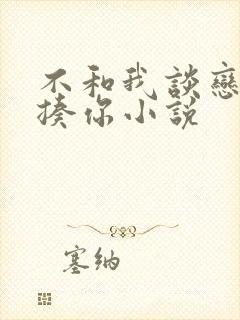 不和我談戀
揍你小説
塞纳